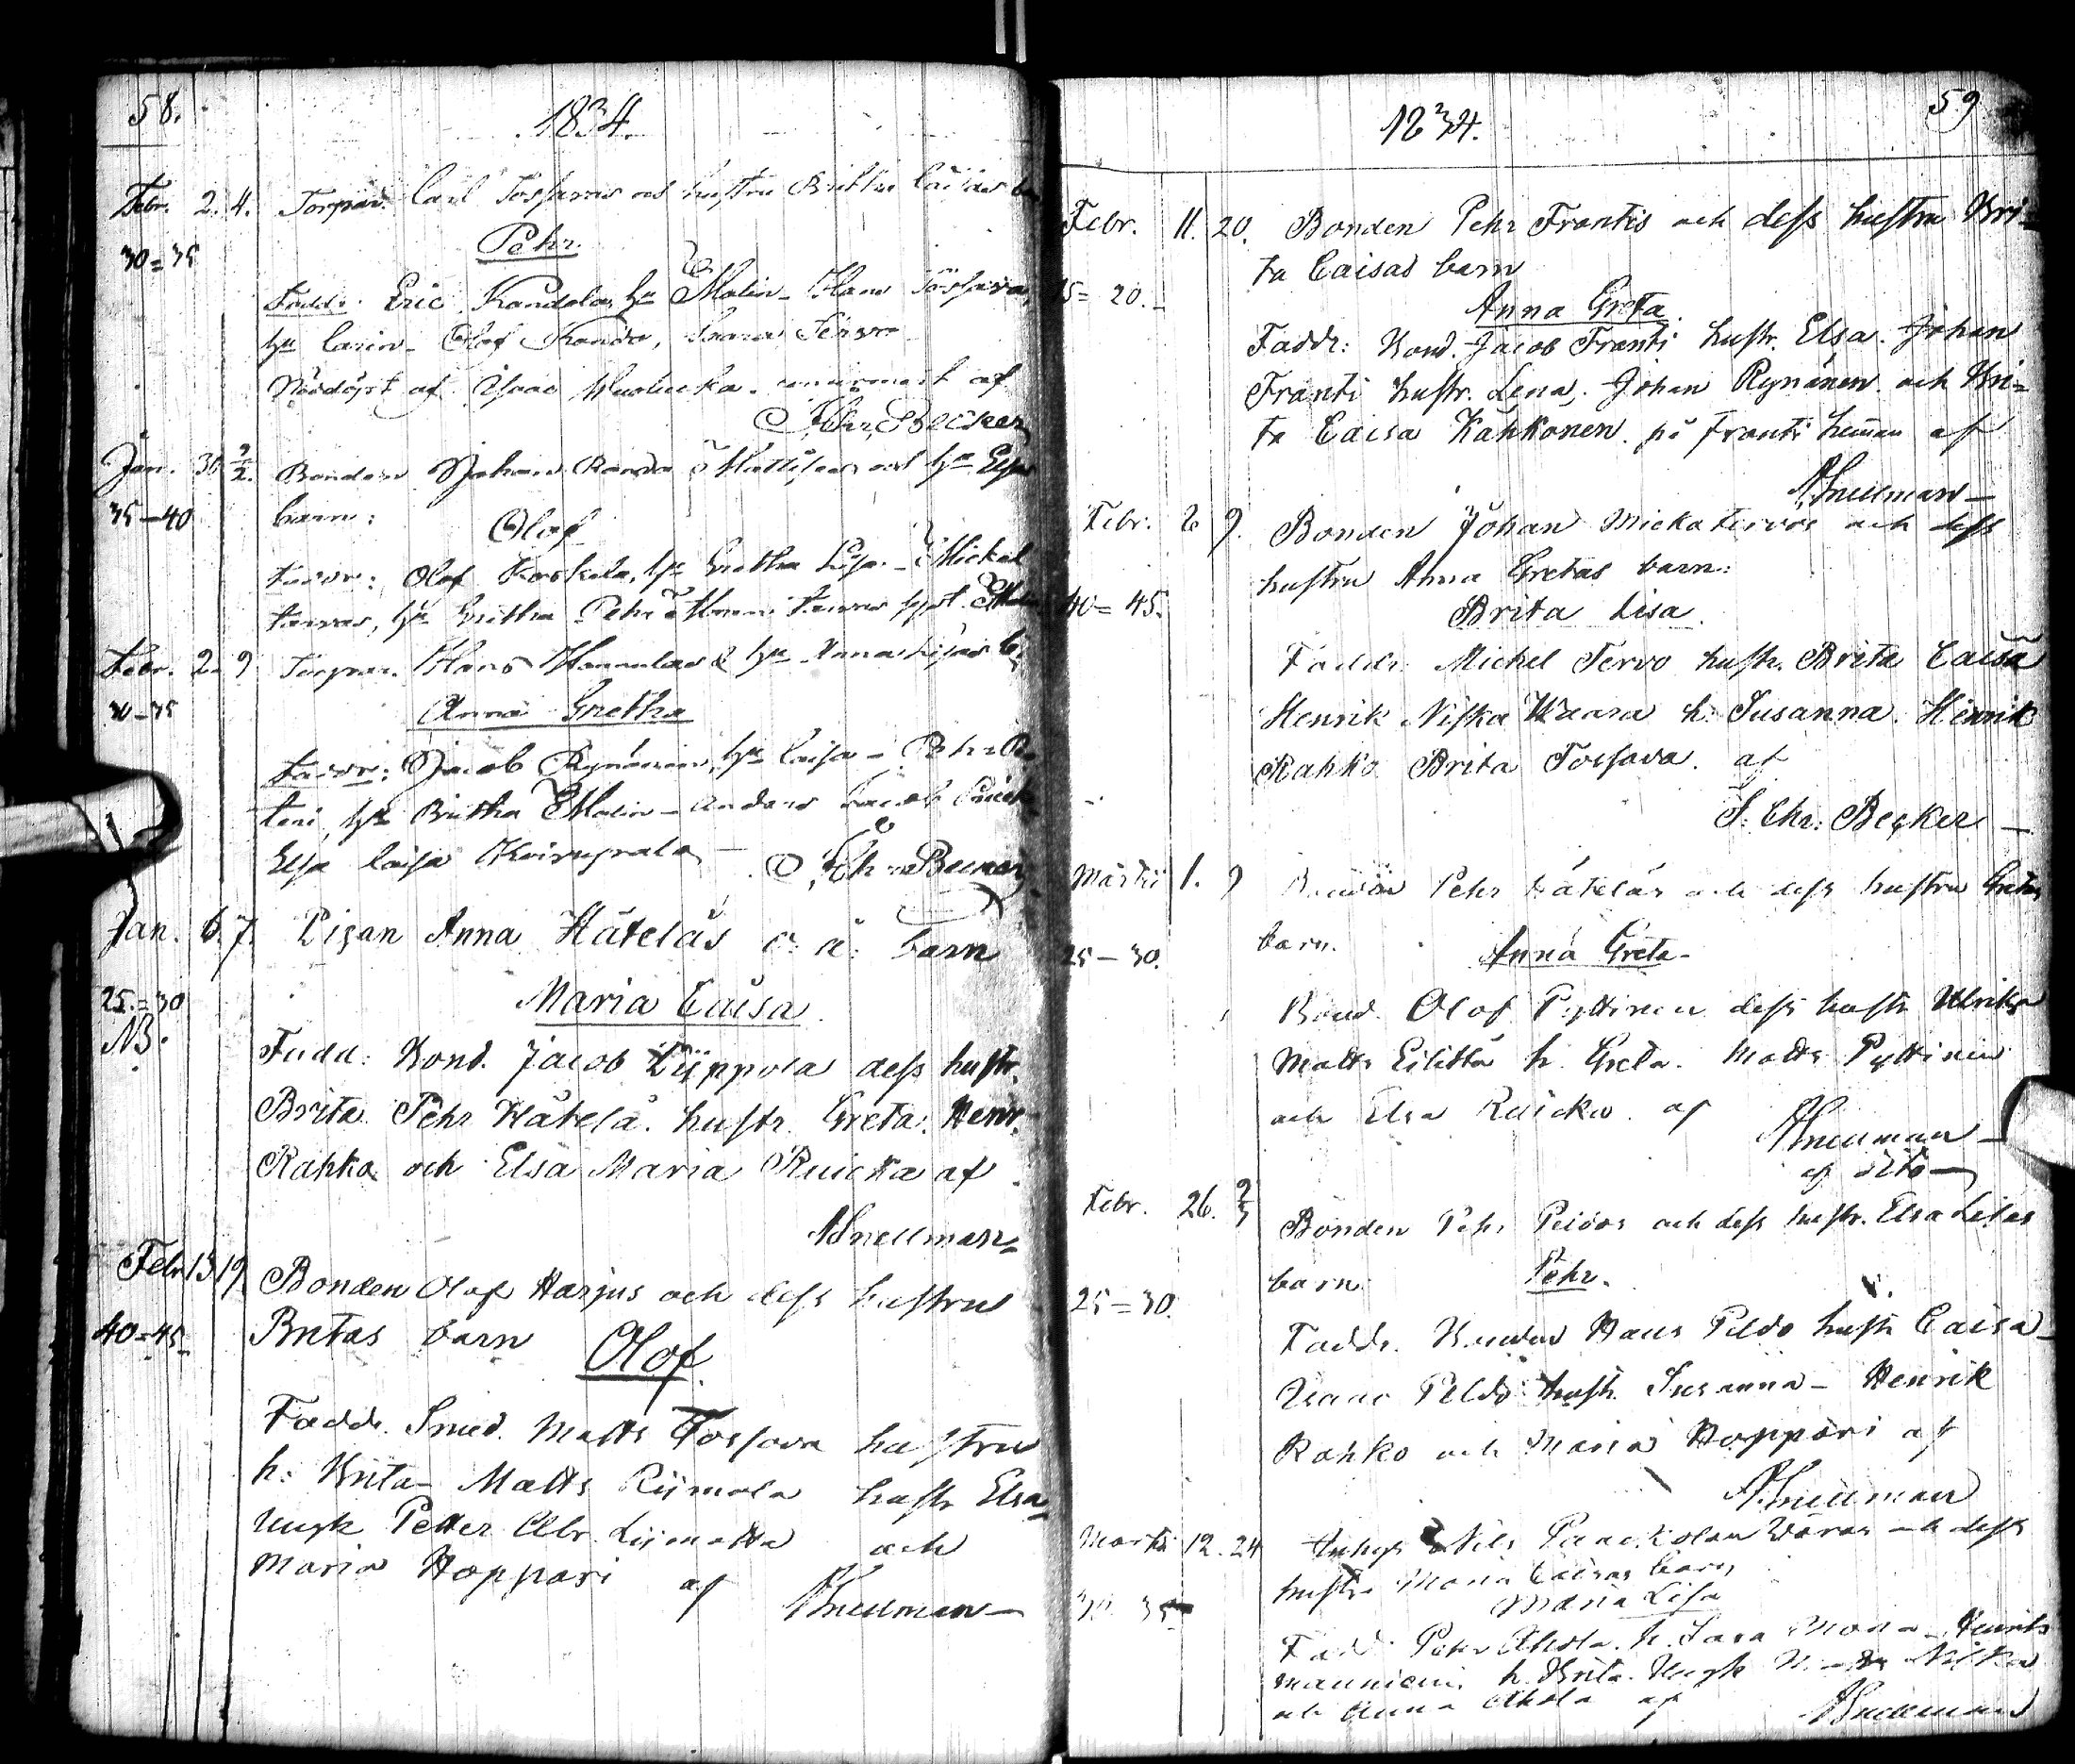 58.
1834.
Febr. 2. 4. Torpar. Carl Tossavas och hustru Britha Caisas
30=35
Pehr.
Fadd: Eric Kandola, hu Malin Hans Tossava,
hu Carin Olof
Nöddöpt af Isaac af
Chr. Becker
Jan. 30 9/2. Bonden Johan Matts och hu Elsas
35-40
barn:
Olof
Faddr: Olof Koskela, hu Gretha Lisa Mickel
hu Gretha Pehr
Febr. 2. 9 Torpar. Hans & hu Anna Lisas b.
30-35
Anna Gretha
Faddr: Jacob Rynänen, hu Caisa Pehr
hu Britha Malin Anders
Elsa Caisa
Chr. Becker
Jan. 6. 7. Pigan Anna Häteläs o. ä. barn
25.=30
NB.
Maria Caisa.
Fadd: Bond. Jacob Lyppola dess hustr.
Brita Pehr Hätelä. hustr. Greta. Henr.
Rahko och Elsa Maria Ruicka af
ASnellman
Febr 13 19. Bonden Olof Harjus och dess hustru
40=45
Britas barn Olof.
Faddr. Smed. Matts Tossava hustru
h: Brita Matts Riimala hustr Elsa
Ungk Petter Abr. Liimatta och
Maria Hoppari af ASnellman
59
1834.
Febr. 11. 20. Bonden Pehr Frantis och dess hustru Bri-
ta Caisas barn
15= 20.
Anna Greta.
Faddr: Bond. Jacob Franti hustr. Elsa. Johan
Franti hustr. Lena, Johan Rynänen och Bri=
ta Caisa Kähkönen på Franti heman af
ASnellman
Febr. 6 9. Bonden Johan Mickatervos och dess
hustru Anna Gretas barn:
40=45.
Brita Lisa.
Faddr. Michel Tervo hustr. Brita Caisa
Henrik Niska Waara h. Susanna. Henrik
Rahko Brita Tossava. af
J: Chr: Becker
Martii 1. 9 Bonden Pehr Häteläs och dess hustru Gretas
barn.
25-30.
Anna Greta
Bond. Olof Pyttinen dess hustr Ulrika
Matts Eilittä h. Greta. Matts Pyttinen
och Elsa Ruicka. af ASnellman
af dito
Febr. 26. 9/3 Bonden Pehr Peldos och dess hustr. Elsa Lisas
barn.
Pehr.
25=30.
Faddr. Bonden Hans Peldo hustr Caisa
Isaac Peldo hustr Susanna Henrik
Rahko och Maria Hoppari af
ASnellman
Martii 12. 24 Nils och dess
hustru Maria Caisas barn
Maria Lisa
30 35
Fadd Pehr Ahola. h. Sara Henrik
h. Brita. Ungk Niska
och Anna Ahola af ASnellman